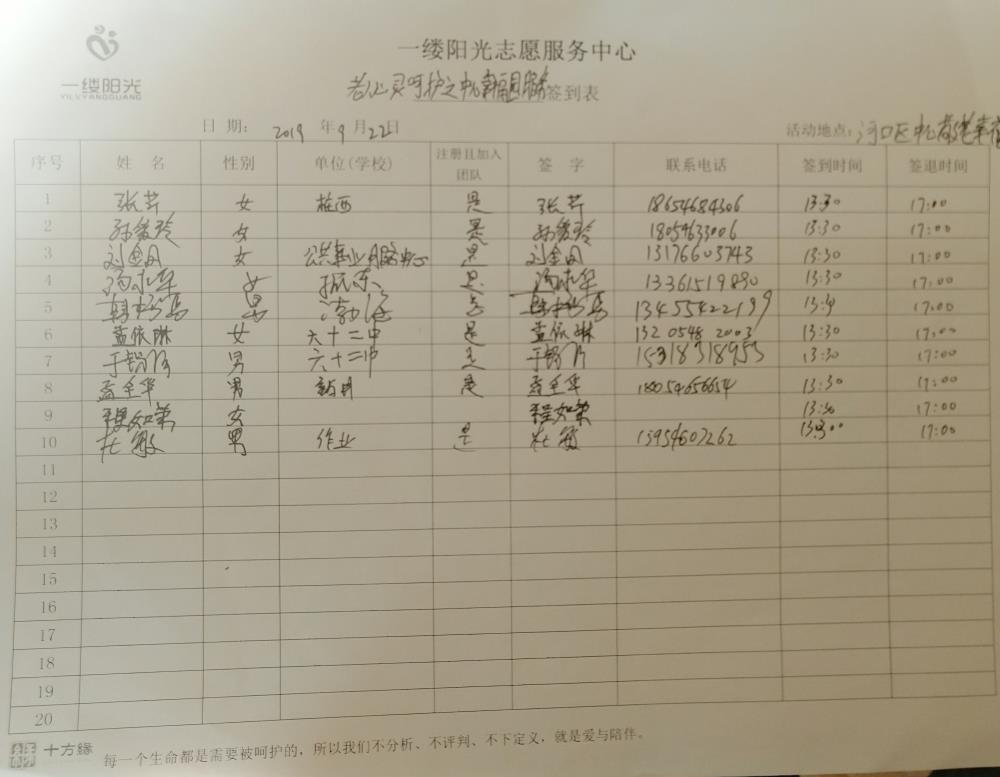 一缕阳光
YILVYANGGUANG
一缕阳光志愿服务中心
老心灵呵护之 签到表
日 期： 2019 年 9 月 22日 活动地点：河口区中心敬老
序号 姓 名 性别 单位(学校) 注册且加入团队 签 字 联系电话 签到时间 签退时间
1 张芹 女 桩西 是 张芹 18654684306 13:30 17:00
2 孙 玲 女 是 孙 玲 18054633006 13:30 17:00
3 刘金 女 公共事业服务中心 是 刘金 13176603743 13:30 17:00
4 汤 华 女 振东 是 汤 华 13361519830 13:30 17:00
5 韩 男 渤海 是 韩 13455422199 13:30 17:00
6 孟依琳 女 六十二中 是 孟依琳 1320548 2003 13:30 17:00
7 于 男 六十二中 是 于 15318318953 13:30 17:00
8 孟 华 男 是 孟 华 18054656654 13:30 17:00
9 程如 女 程如 13:30 17:00
10 杜敏 男 作业 是 杜敏 13954607262 13:30 17:00
11
12
13
14
15
16
17
18
19
20
十方缘 每一个生命都是需要被呵护的，所以我们不分析、不评判、不下定义，就是爱与陪伴。